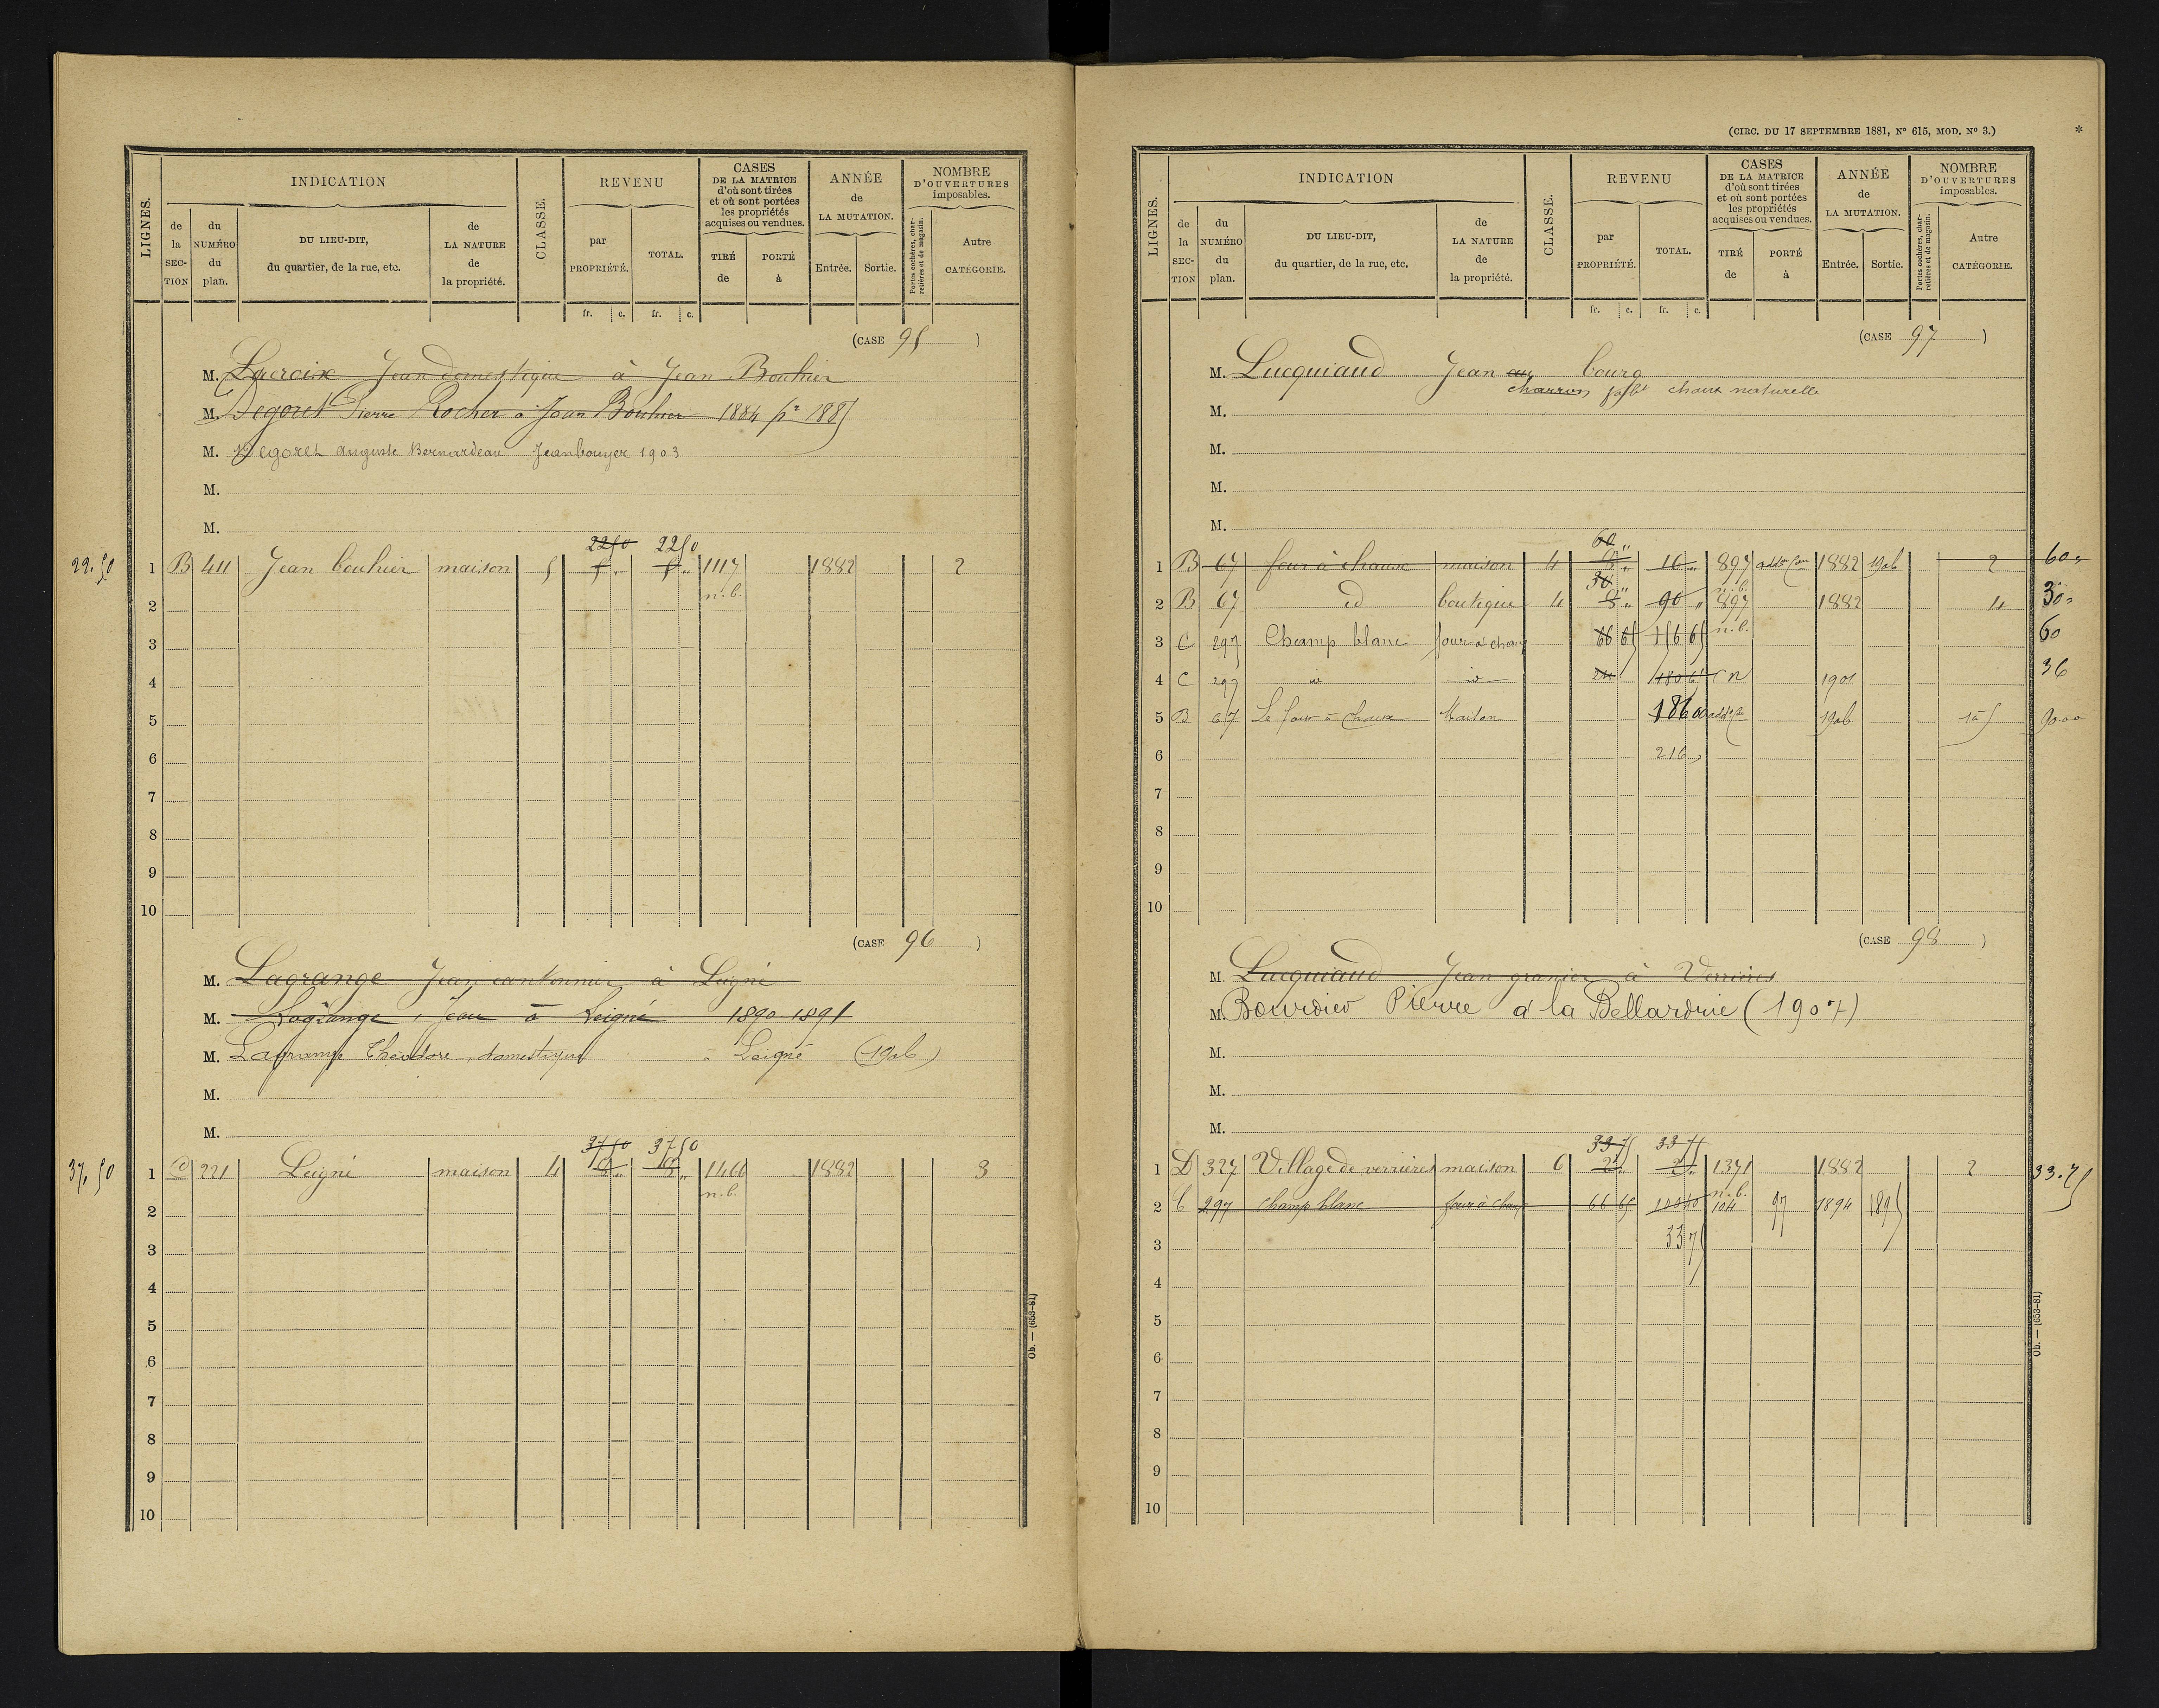 LIGNES.
INDICATION
de la SECTION
du NUMÉRO du plan.
DU LIEU-DIT, du quartier, de la rue, etc.
de LA NATURE de la propriété.
CLASSE.
REVENU
par PROPRIÉTÉ.
TOTAL.
CASES DE LA MATRICE d'où sont tirées et où sont portées les propriétés acquises ou vendues.
TIRÉ de
PORTÉ à
ANNÉE de LA MUTATION.
Entrée.
Sortie.
NOMBRE D'OUVERTURES imposables.
Portes cochères, charretières et de magasin.
Autre CATÉGORIE.
fr. c. fr. c.
(CASE 95)
M. Lacroix Jean domestique à Jean Bouhier
M. Degoret Pierre Rocher à Jean Bouhier 1884 pr 1885
M. Degoret auguste Bernardeau Jeanbouyer 1903
M.
M.
2250 2250
22.50 1 B 411 Jean bouhier maison 5 5 " 5 " 1117 1882 2
n.b.
2
3
4
5
6
7
8
9
10
(CASE 96)
M. Lagrange Jean cantonnier à Leigné
M. Lagrange Jean à Leigné 1890-1891
M. Lagrange Théodore, domestique à Leigné (1906)
M.
M.
3750 3750
37,50 1 221 Leigné maison 4 8 " 8 " 1466 1882 3
n.b.
2
3
4
5
6
7
8
9
10
Ob. — (653-81)
(CIRC. DU 17 SEPTEMBRE 1881, N° 615, MOD. N° 3.) *
LIGNES.
INDICATION
de la SECTION
du NUMÉRO du plan.
DU LIEU-DIT, du quartier, de la rue, etc.
de LA NATURE de la propriété.
CLASSE.
REVENU
par PROPRIÉTÉ.
TOTAL.
CASES DE LA MATRICE d'où sont tirées et où sont portées les propriétés acquises ou vendues.
TIRÉ de
PORTÉ à
ANNÉE de LA MUTATION.
Entrée.
Sortie.
NOMBRE D'OUVERTURES imposables.
Portes cochères, charretières et de magasin.
Autre CATÉGORIE.
fr. c. fr. c.
(CASE 97)
M. Lucquiaud Jean au bourg
charron fabt chaux naturelle
M.
M.
M.
M.
60 "
1 B 67 four à chaux maison 4 8 " 16 " 897 1882 1906 2 60 "
30 " n.b.
2 B 67 id boutique 4 8 " 90 " 897 1882 4 30 "
n.b.
3 C 297 Champ blanc four à chaux 66 65 156 65 60
4 C 297 id id 24 180 65 C n 1901 36
5 B 67 Le four à chaux Maison 186 00 1906 15 90.00
6 216 "
7
8
9
10
(CASE 98)
M. Lucquiaud Jean granier à Verrières
M. Bourdieu Pierre à la Bellardrie (1907)
M.
M.
M.
33 75 33 75
1 D 327 Village de verrières maison 6 2 " 2 " 1371 1882 2 33.75
n.b.
2 C 297 Champ blanc four à chaux 66 65 100 40 104 97 1894 1895
3 33 75
4
5
6
7
8
9
10
Ob. — (653-81)